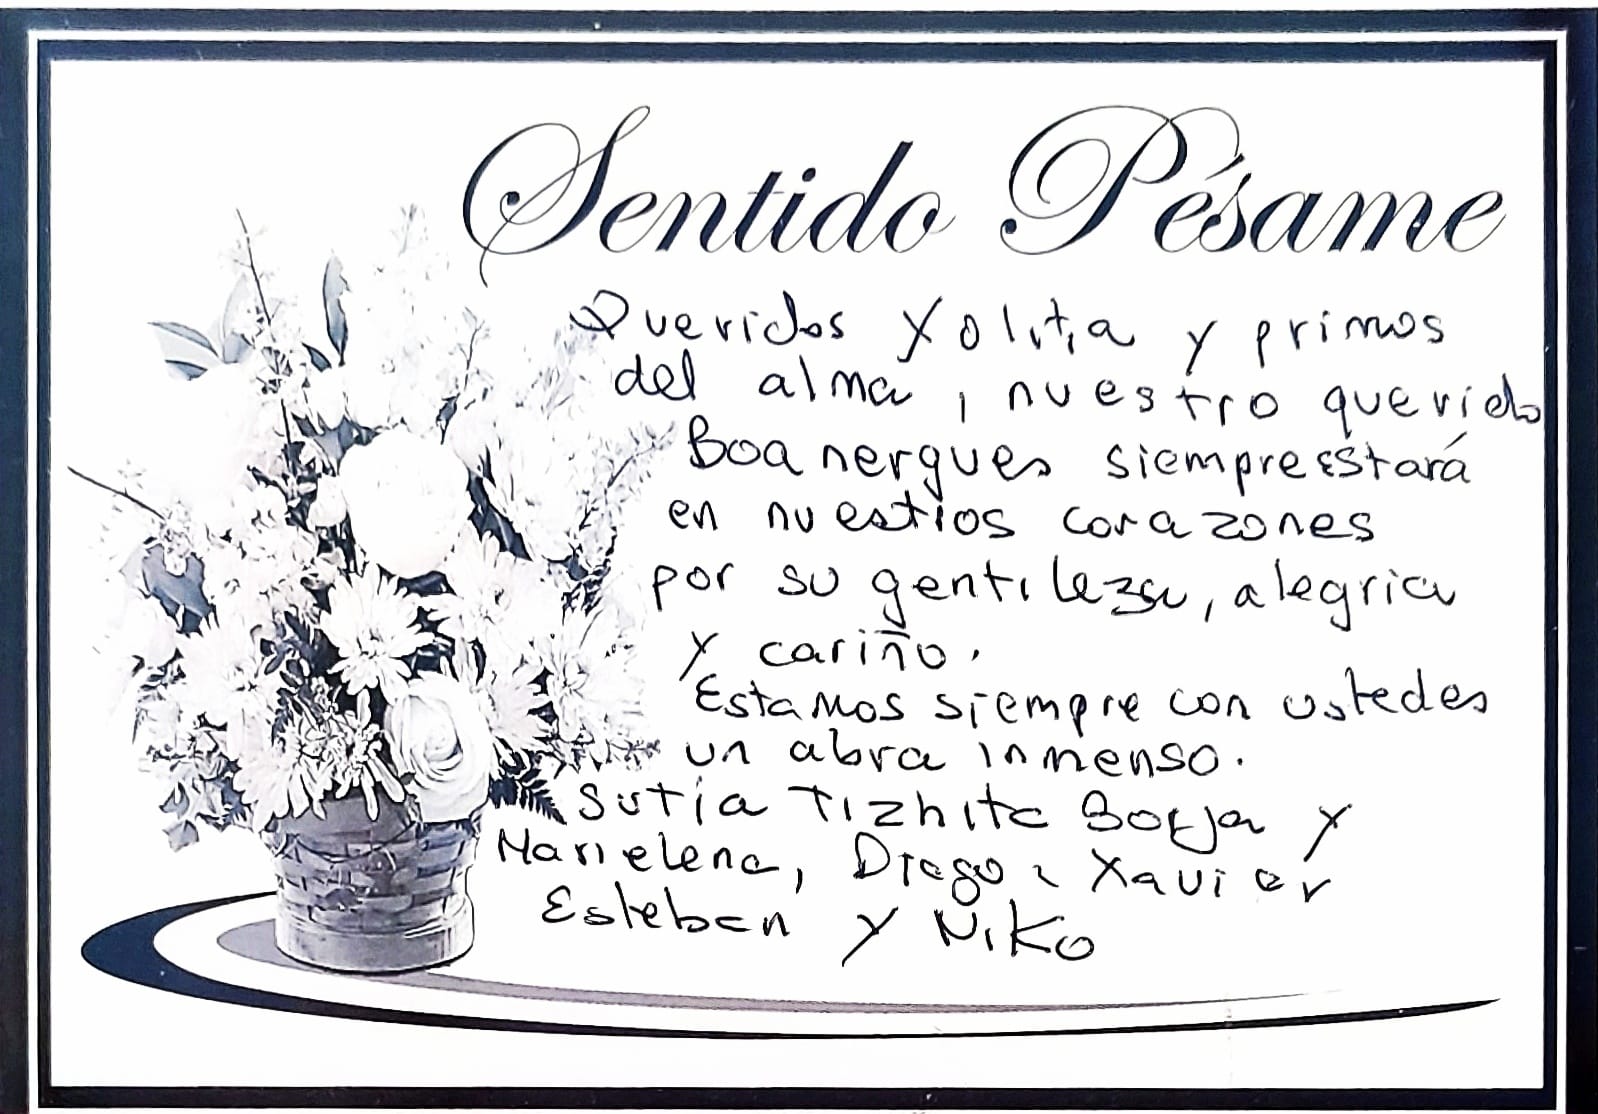 Sentido Pésame
Queridos Yolitia y primos
del alma, nuestro querido
Boanergues siempre estará
en nuestros corazones
por su gentileza, alegria
y cariño.
Estamos siempre con ustedes
un abra inmenso.
Su tía Tizhita Borja y
Marielena, Diego, Xavier
Esteban y Niko